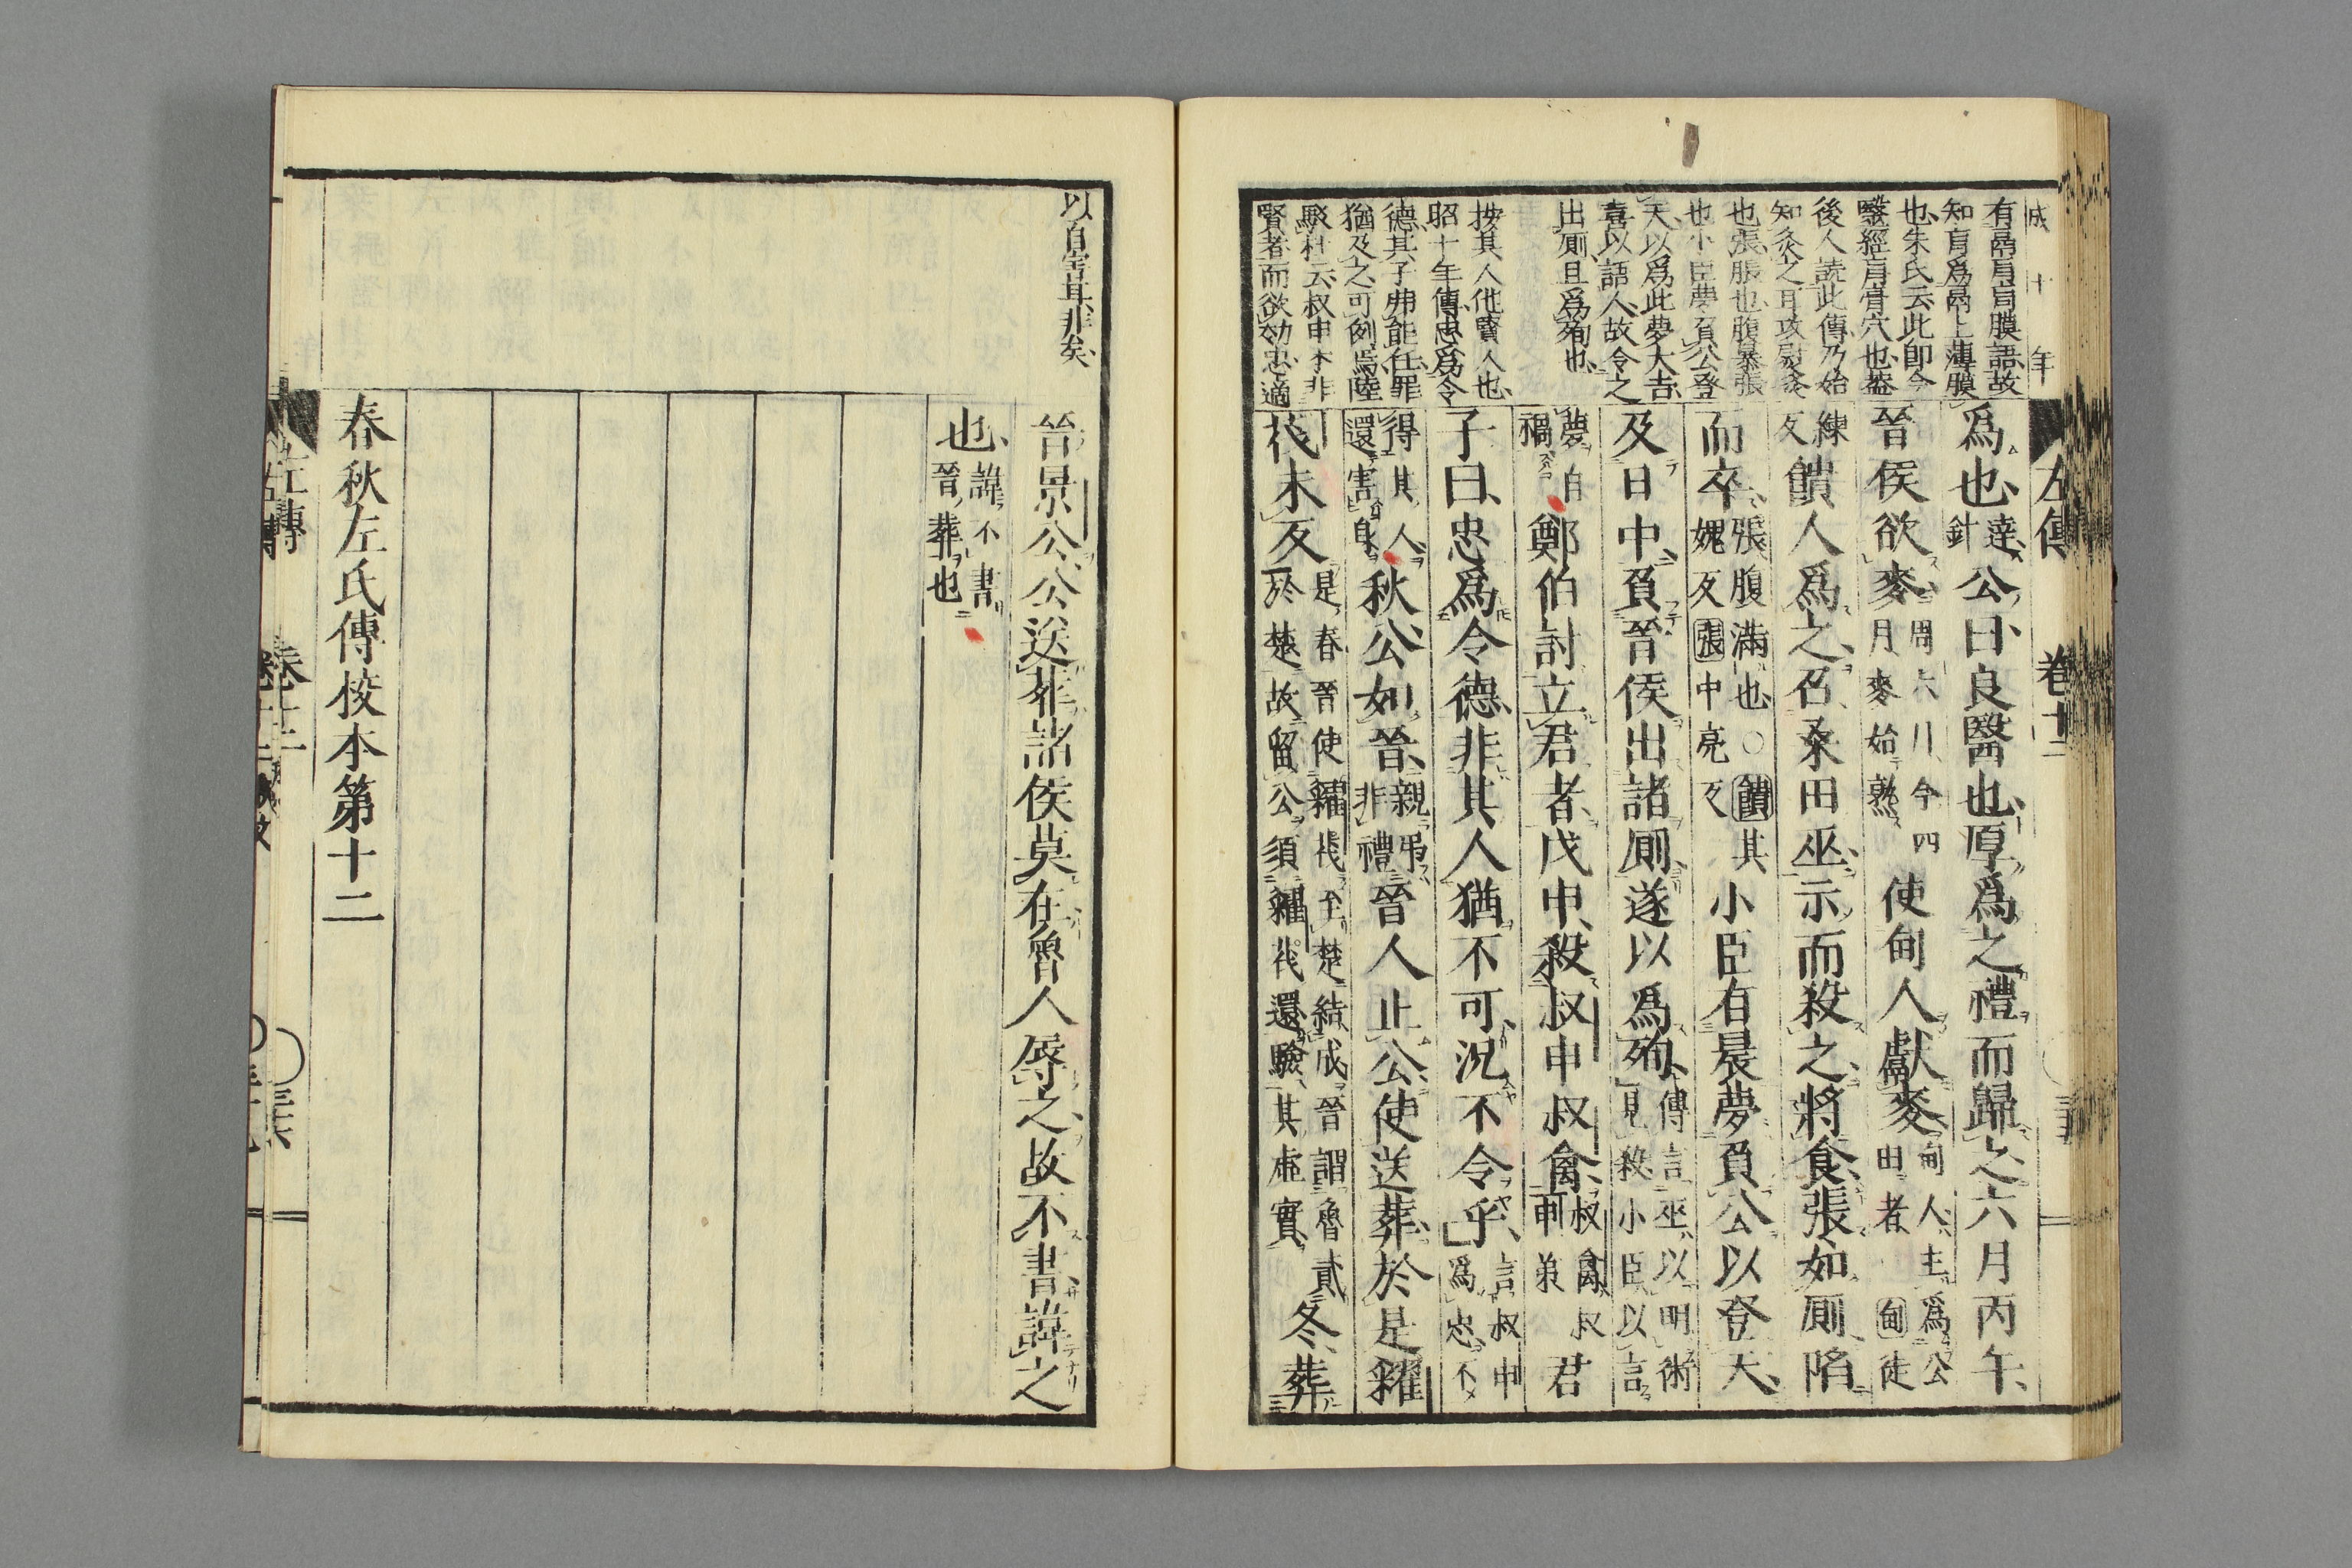 成十年
有鬲肓肓膜語故
知肓爲鬲上薄膜
也朱氏云此卽今
醫經膏肓穴也蓋
後人読此傳乃始
知灸之耳攻熨灸
也張脹也腹暴張
也小臣夢負公登
天以爲此夢大吉
喜以語人故令之
出厠且爲殉也
按其人他賢人也
昭十年傳忠爲令
德其子弗能任罪
猶及之可例焉陸
駁杜云叔申本非
賢者而欲効忠適
左傳 卷十二
爲也達針公曰良醫也厚爲之禮而歸之六月丙午
晉侯欲麥周六月今四月麥始熟使甸人獻麥甸人主爲公田者甸徒
練反饋人爲之召桑田巫示而殺之將食張如厠陷
而卒張腹滿也○饋其媿反張中亮反小臣有晨夢負公以登天
及日中負晉侯出諸厠遂以爲殉傳言巫以明術見殺小臣以言
夢自禍鄭伯討立君者戊申殺叔申叔禽叔禽叔申弟君
子曰忠爲令德非其人猶不可況不令乎言叔申爲忠不
得其人還害身秋公如晉親弔非禮晉人止公使送葬於是糴
茷未反是春晉使糴茷至楚結成晉謂魯貳於楚故留公須糴茷還驗其虛實冬葬
以自害其非矣
晉景公公送葬諸侯莫在魯人辱之故不書諱之
也諱不書晉葬也
春秋左氏傳挍本第十二
左傳 卷十二 三十六